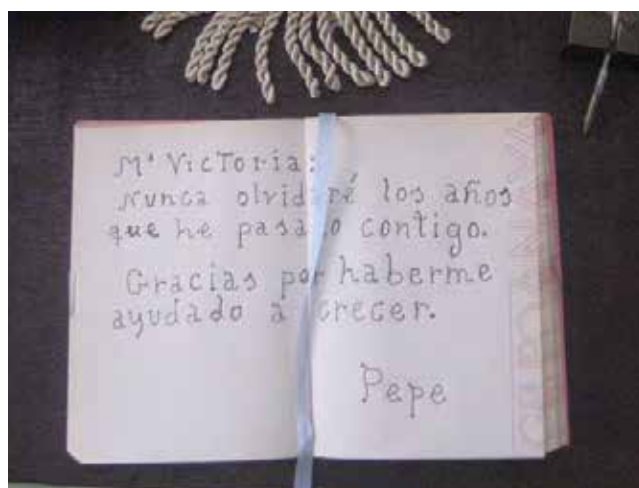 Mª Victoria:
Nunca olvidaré los años
que he pasado contigo.
Gracias por haberme
ayudado a crecer.
Pepe